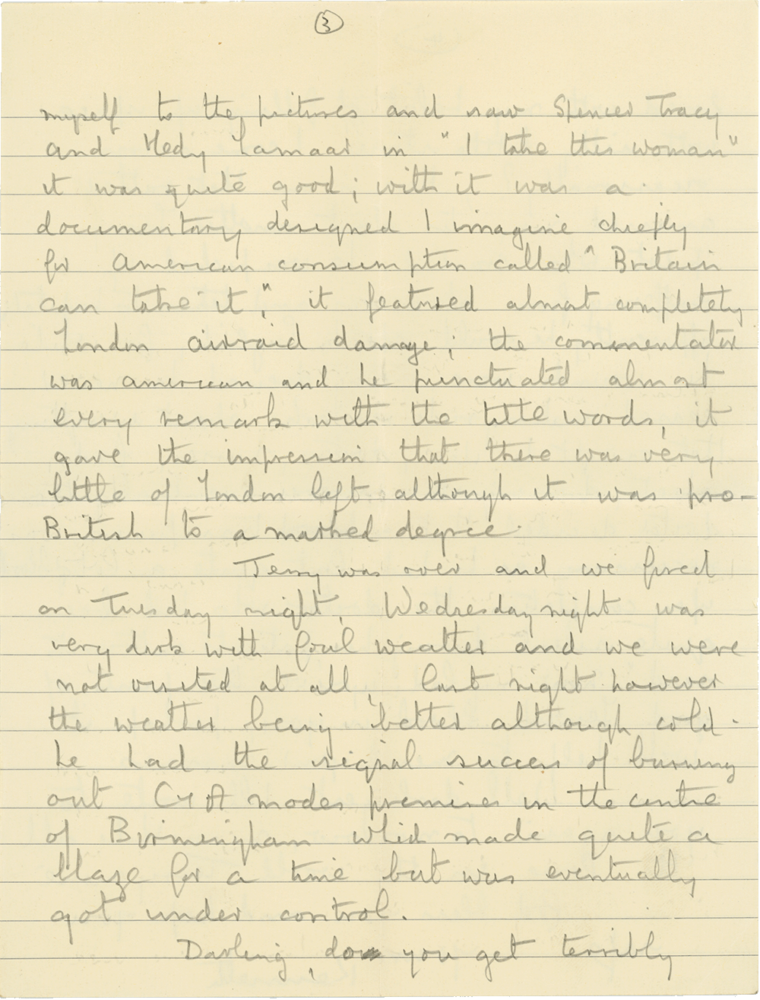 3
myself to the pictures and saw Spencer Tracy
and Hedy Lamaar in "I take this woman"
it was quite good; with it was a
documentary designed I imagine chiefly
for American consumption called "Britain
can take it", it featured almost completely
London airraid damage; the commentator
was american and he punctuated almost
every remark with the title words, it
gave the impression that there was very
little of London left although it was pro-
British to a marked degree.
Jerry was over and we fired
on Tuesday night, Wednesday night was
very dark with foul weather and we were
not visited at all, last night however
the weather being better although cold.
he had the signal success of burning
out C & A modes premises in the centre
of Birmingham which made quite a
blaze for a time but was eventually
got under control.
Darling, do you get terribly